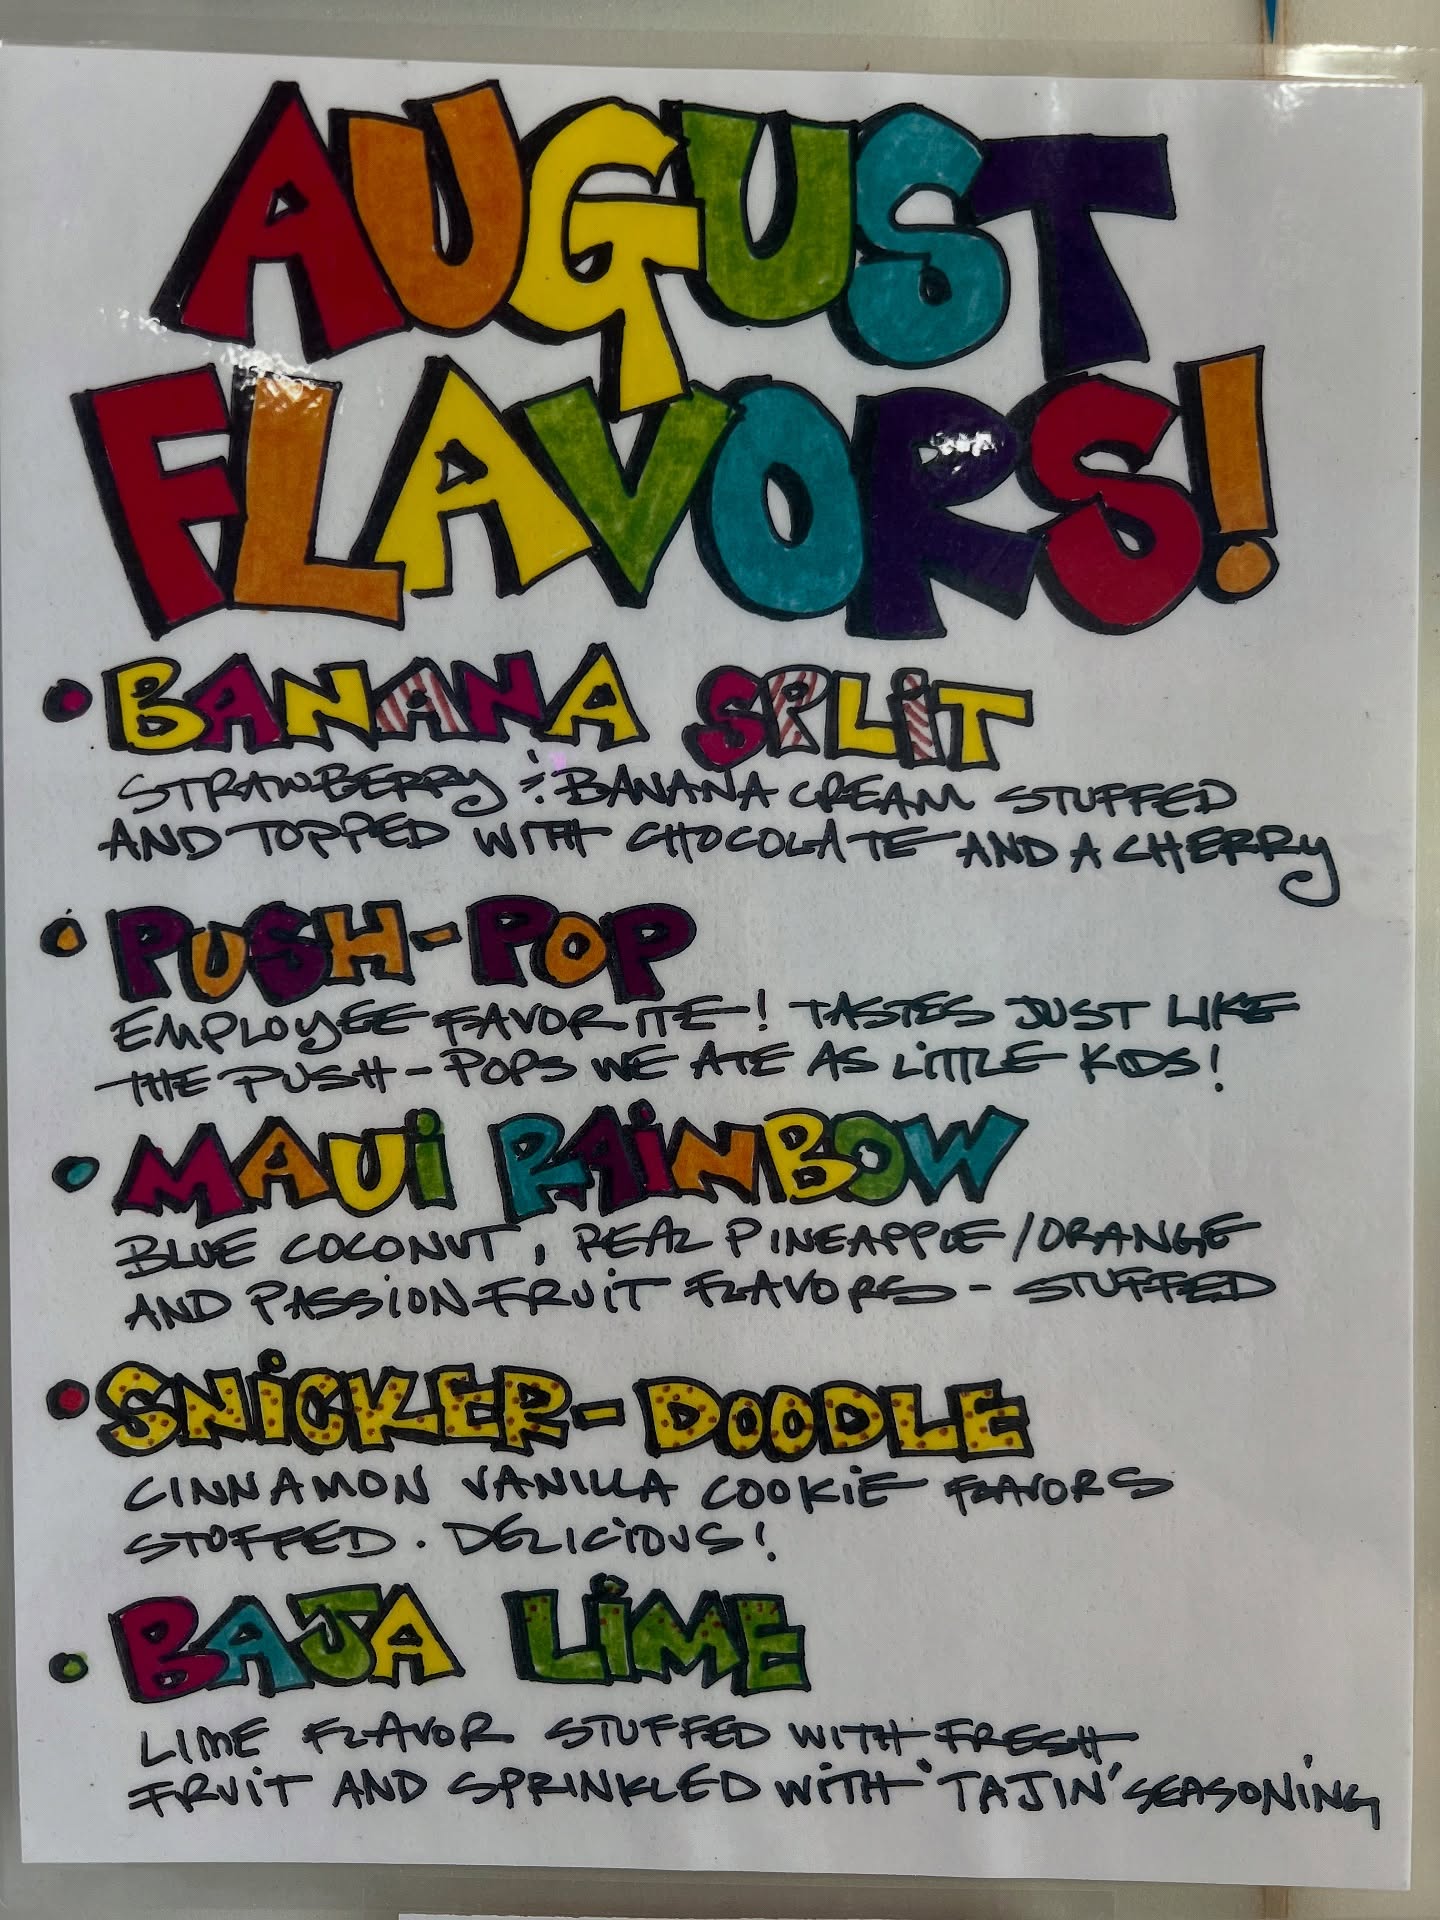 AUGUST
FLAVORS!
• BANANA SPLIT
STRAWBERRY & BANANA CREAM STUFFED
AND TOPPED WITH CHOCOLATE AND A CHERRY
• PUSH-POP
EMPLOYEE FAVORITE! TASTES JUST LIKE
THE PUSH-POPS WE ATE AS LITTLE KIDS!
• MAUi RAiNBOW
BLUE COCONUT, REAL PINEAPPLE/ORANGE
AND PASSiONFRUiT FLAVORS - STUFFED
• SNiCKER-DOODLE
CINNAMON VANILLA COOKiE FLAVORS
STUFFED. DELICiOUS!
• BAJA LiME
LIME FLAVOR STUFFED WiTH FRESH
FRUiT AND SPRINKLED WiTH 'TAJIN' SEASONiNG